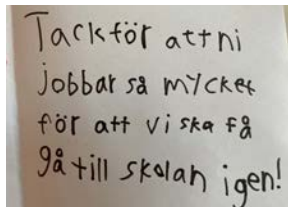 Tack för att ni
jobbar så mycket
för att vi ska få
gå till skolan igen!